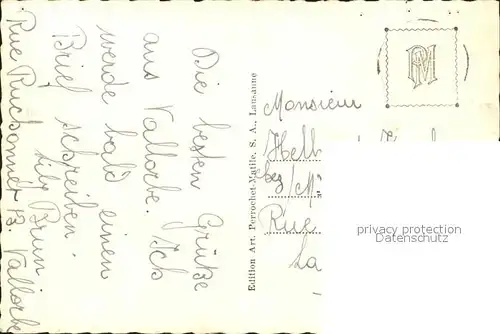 Die besten Grüße
aus Vallorbe. Ich
werde bald einen
Brief schreiben.
Lily Brun
Rue 13. Vallorbe
Edition Art. Perrochet-Matile, S. A., Lausanne
PM
Monsieur
Rue
privacy protection
Datenschutz